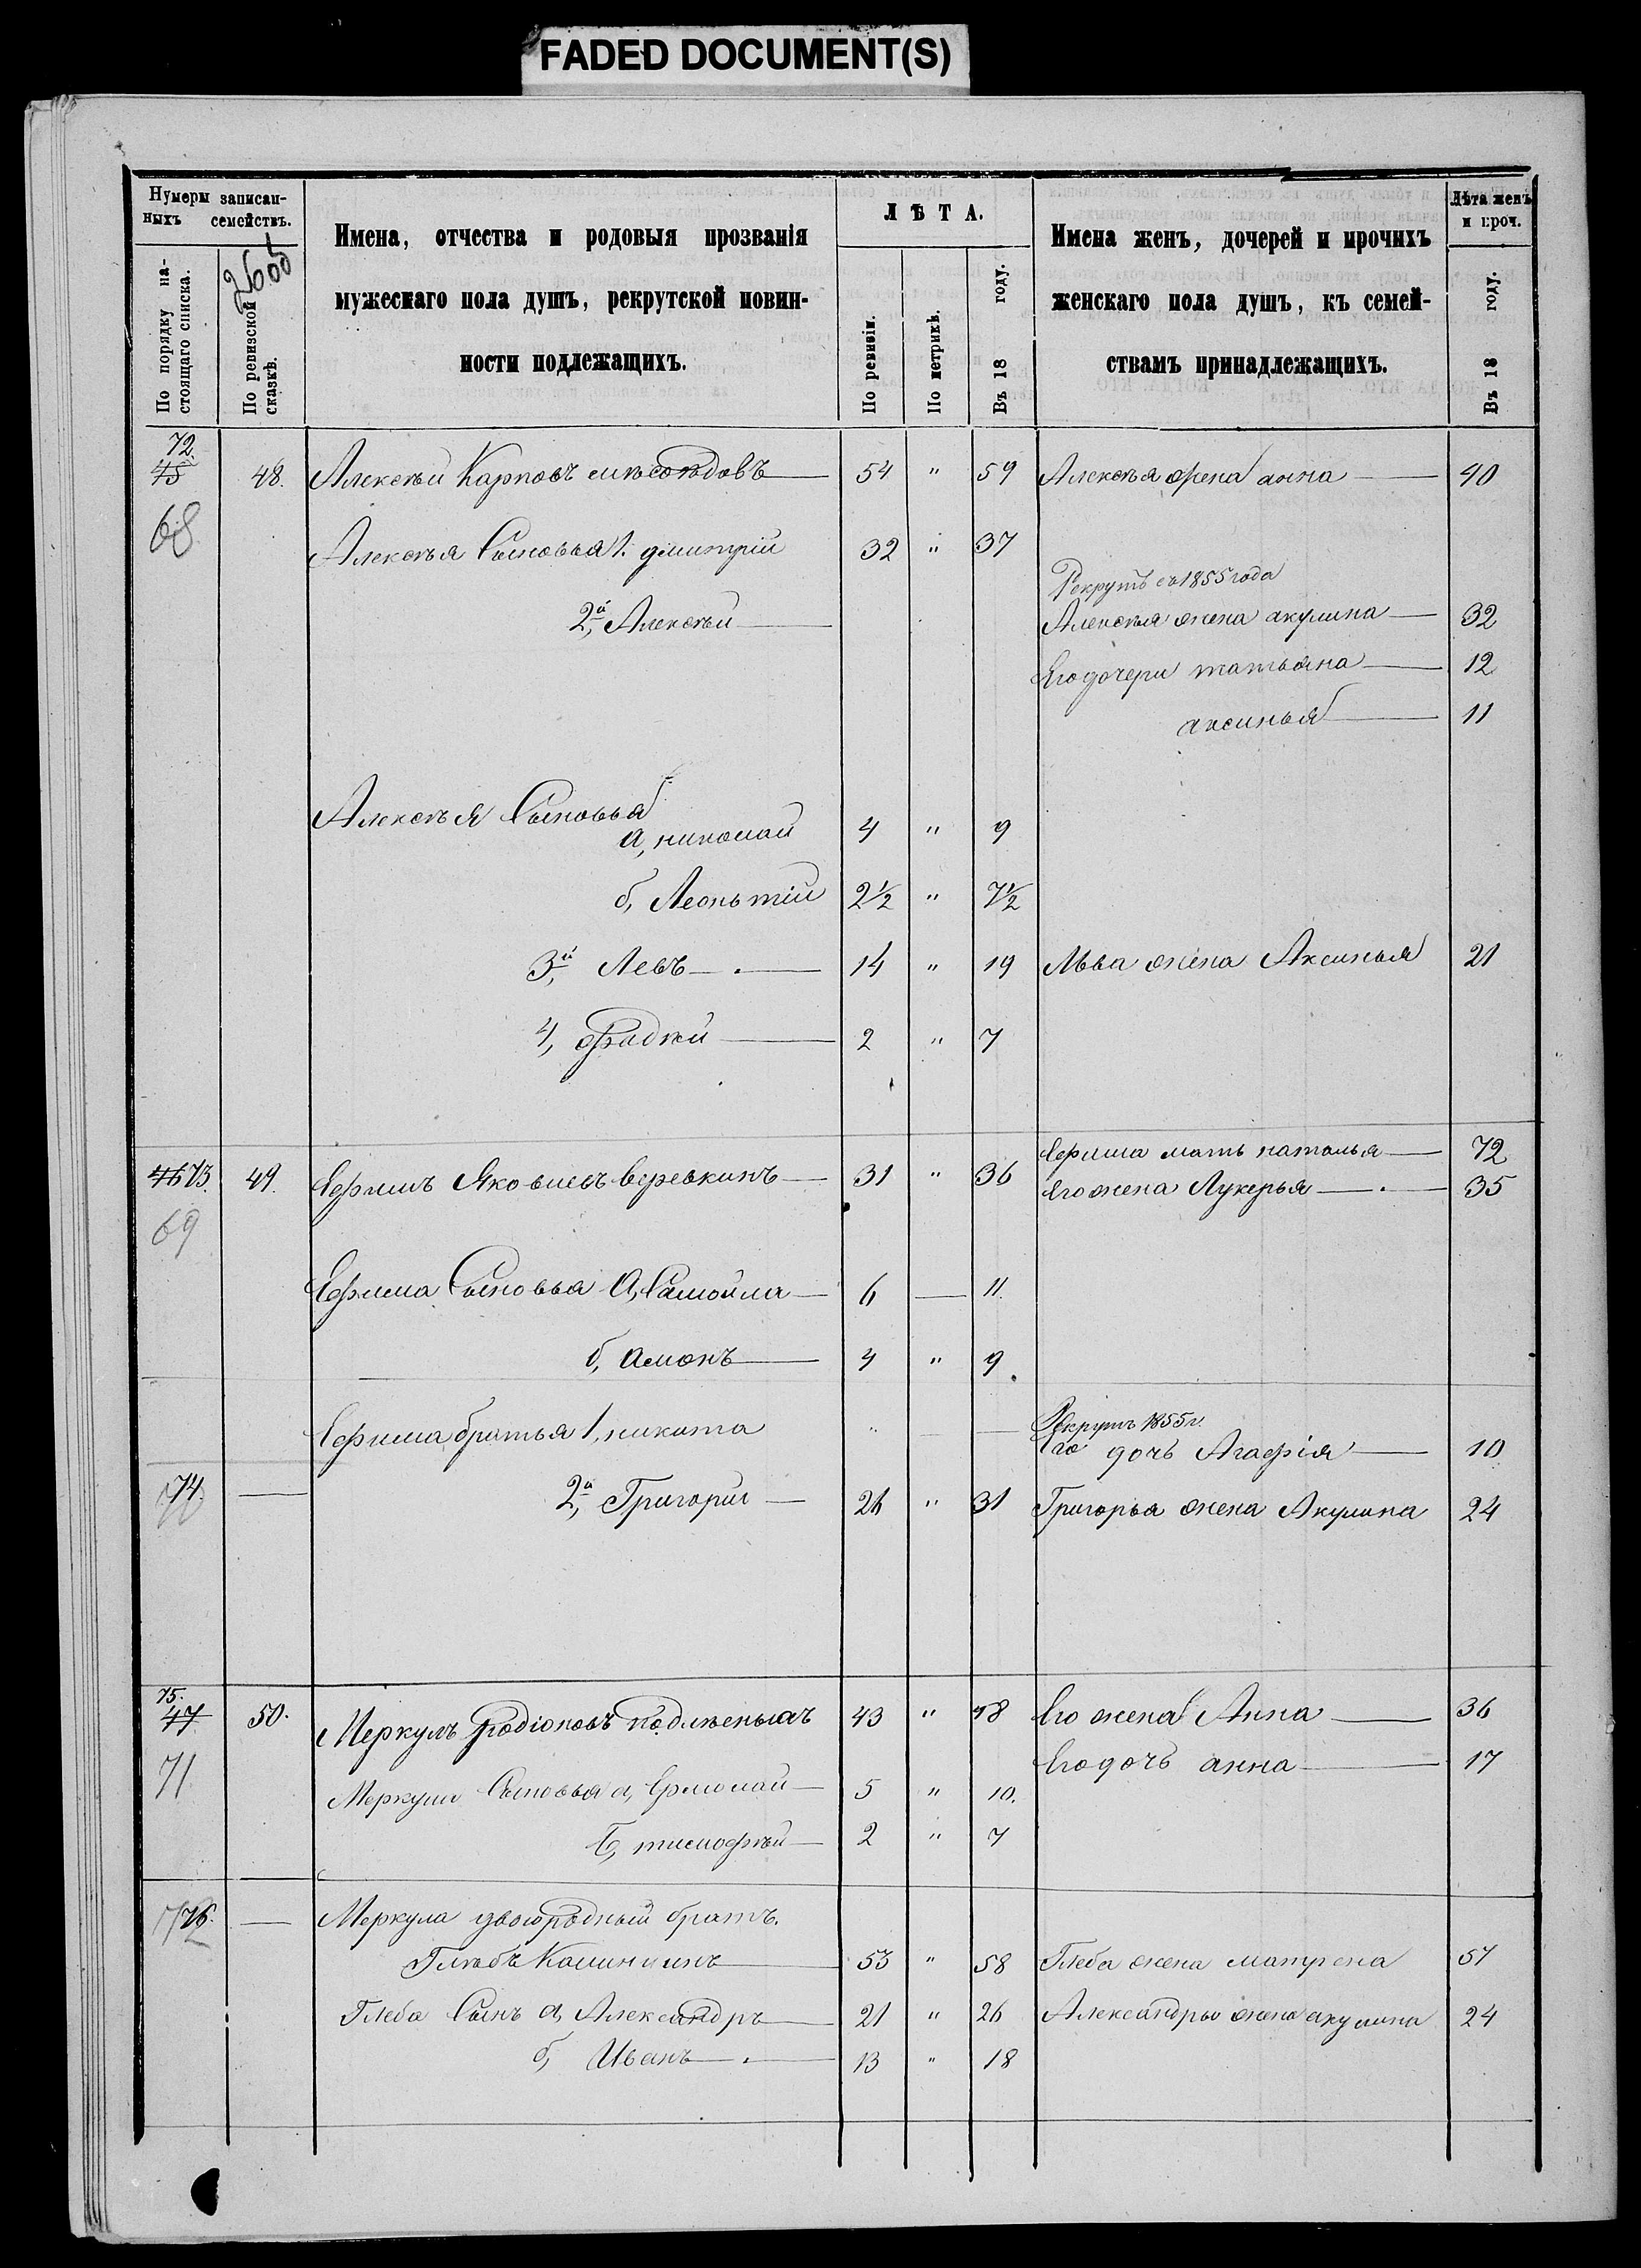 FADED DOCUMENT(S)
Нумеры записан-
ныхъ семействъ.
По порядку на-
стоящаго списка.
По ревизской
сказкѣ.
Имена, отчества и родовыя прозванія
мужескаго пола душъ, рекрутской повин-
ности подлежащихъ.
ЛѢТА.
По ревизіи.
По метрикѣ.
Въ 18 году.
Имена женъ, дочерей и прочихъ
женскаго пола душъ, къ семей-
ствамъ принадлежащихъ.
Лѣта женъ
и проч.
Въ 18 году.
72.
45 48. Алексѣй Карповъ мясоѣдовъ 54 " 59 Алексѣя жена анна 40
68
Алексѣя Сыновья 1. дмитрій 32 " 37
Рекрутъ съ 1855 года
2й, Алексѣй Алексѣя жена акулина 32
Его дочери татьяна 12
аксинья 11
Алексѣя Сыновья
а, николай 4 " 9
б, Леоньтій 2½ " 7½
3й, Левъ 14 " 19 Льва жена Аксинья 21
4, Фадѣй 2 " 7
Ефима мать наталья 72
46 73. 49. Ефимъ Яковлевъ веревкинъ 31 " 36 Его жена Лукерья 35
69
Ефима Сыновья А, Самойла 6 — 11.
б, Амонъ 4 " 9
Рекрутъ 1855 г.
Ефима братья 1, никита " — Его дочь Агафія 10
74. — 2й, Григорій 26 " 31 Григорья жена Акулина 24
75.
47 50. Меркулъ родіоновъ 43 " 48 Его жена Анна 36
71 Его дочь анна 17
Меркула Сыновья а, Ермолай 5 " 10.
Б, тимофѣй 2 " 7
76. — Меркула двоюродный братъ.
72
Глѣбъ Калининъ 53 " 58 Глеба жена матрена 57
Глеба Сынъ а, Александръ 21 " 26 Александры жена акулина 24
б, Иванъ 13 " 18